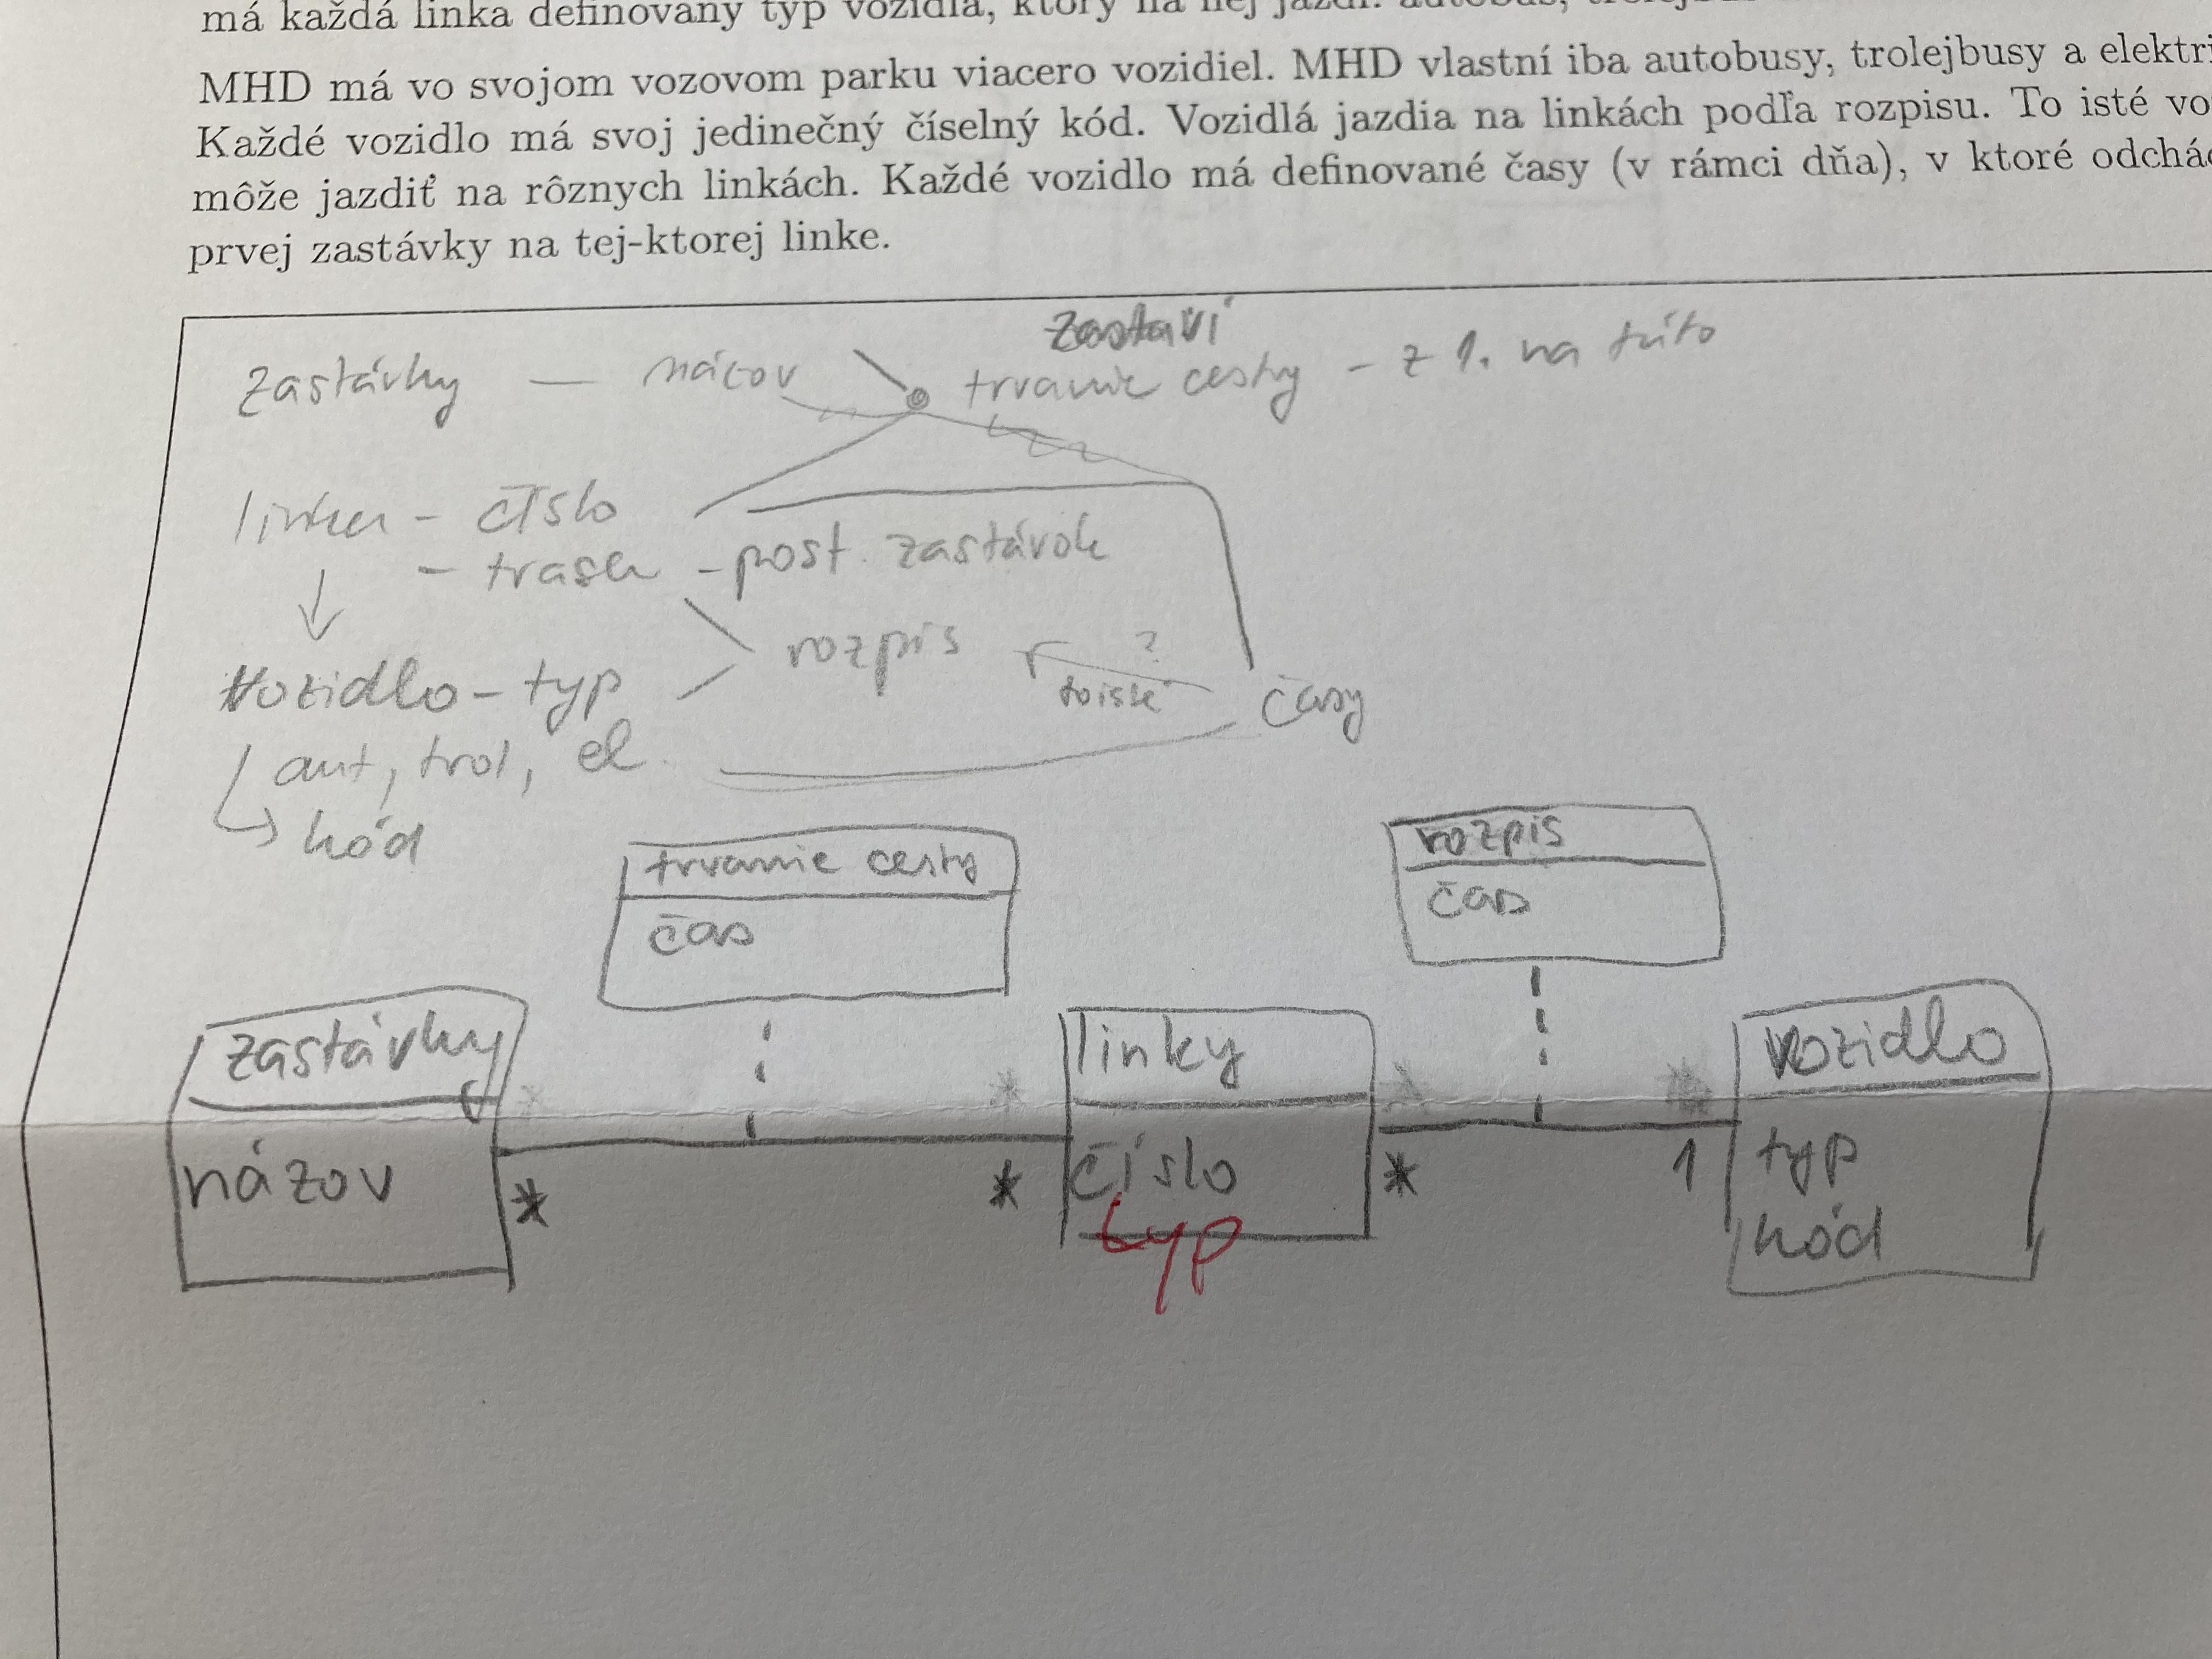 má každá linka definovaný typ vozidla, ktorý na nej jazdí: autobus,
MHD má vo svojom vozovom parku viacero vozidiel. MHD vlastní iba autobusy, trolejbusy a elektri
Každé vozidlo má svoj jedinečný číselný kód. Vozidlá jazdia na linkách podľa rozpisu. To isté vo
môže jazdiť na rôznych linkách. Každé vozidlo má definované časy (v rámci dňa), v ktoré odchá
prvej zastávky na tej-ktorej linke.
zastaví
zastávky — názov trvanie cesty - z 1. na túto
linka - číslo
- trasa - post. zastávok
rozpis ?
toisté
vozidlo - typ časy
aut, trol, el.
kód
trvanie cesty
čas
rozpis
čas
zastávky
názov
* *
linky
číslo
typ
* 1
vozidlo
typ
kód